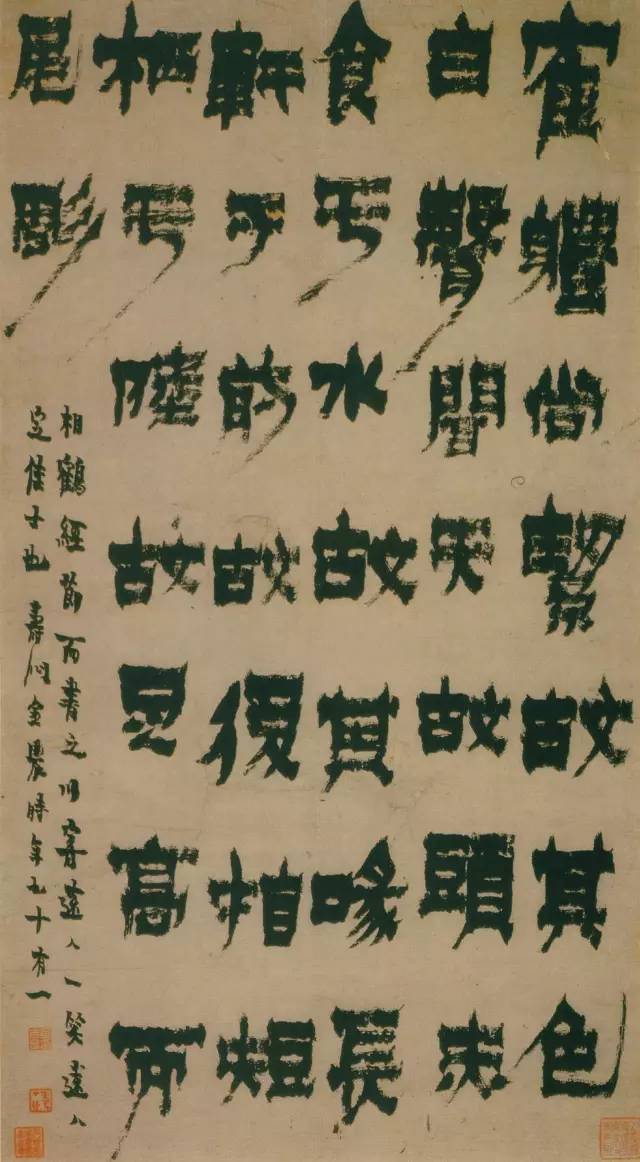 寉軆尚絜故其色
白聲聞天故頭赤
食于水故其喙長
軒于前故後指短
栖于陸故足高而
尾彫
相鶴經節而書之以寄遠人一笑遠人
定佳士也 壽門金農時年七十有一